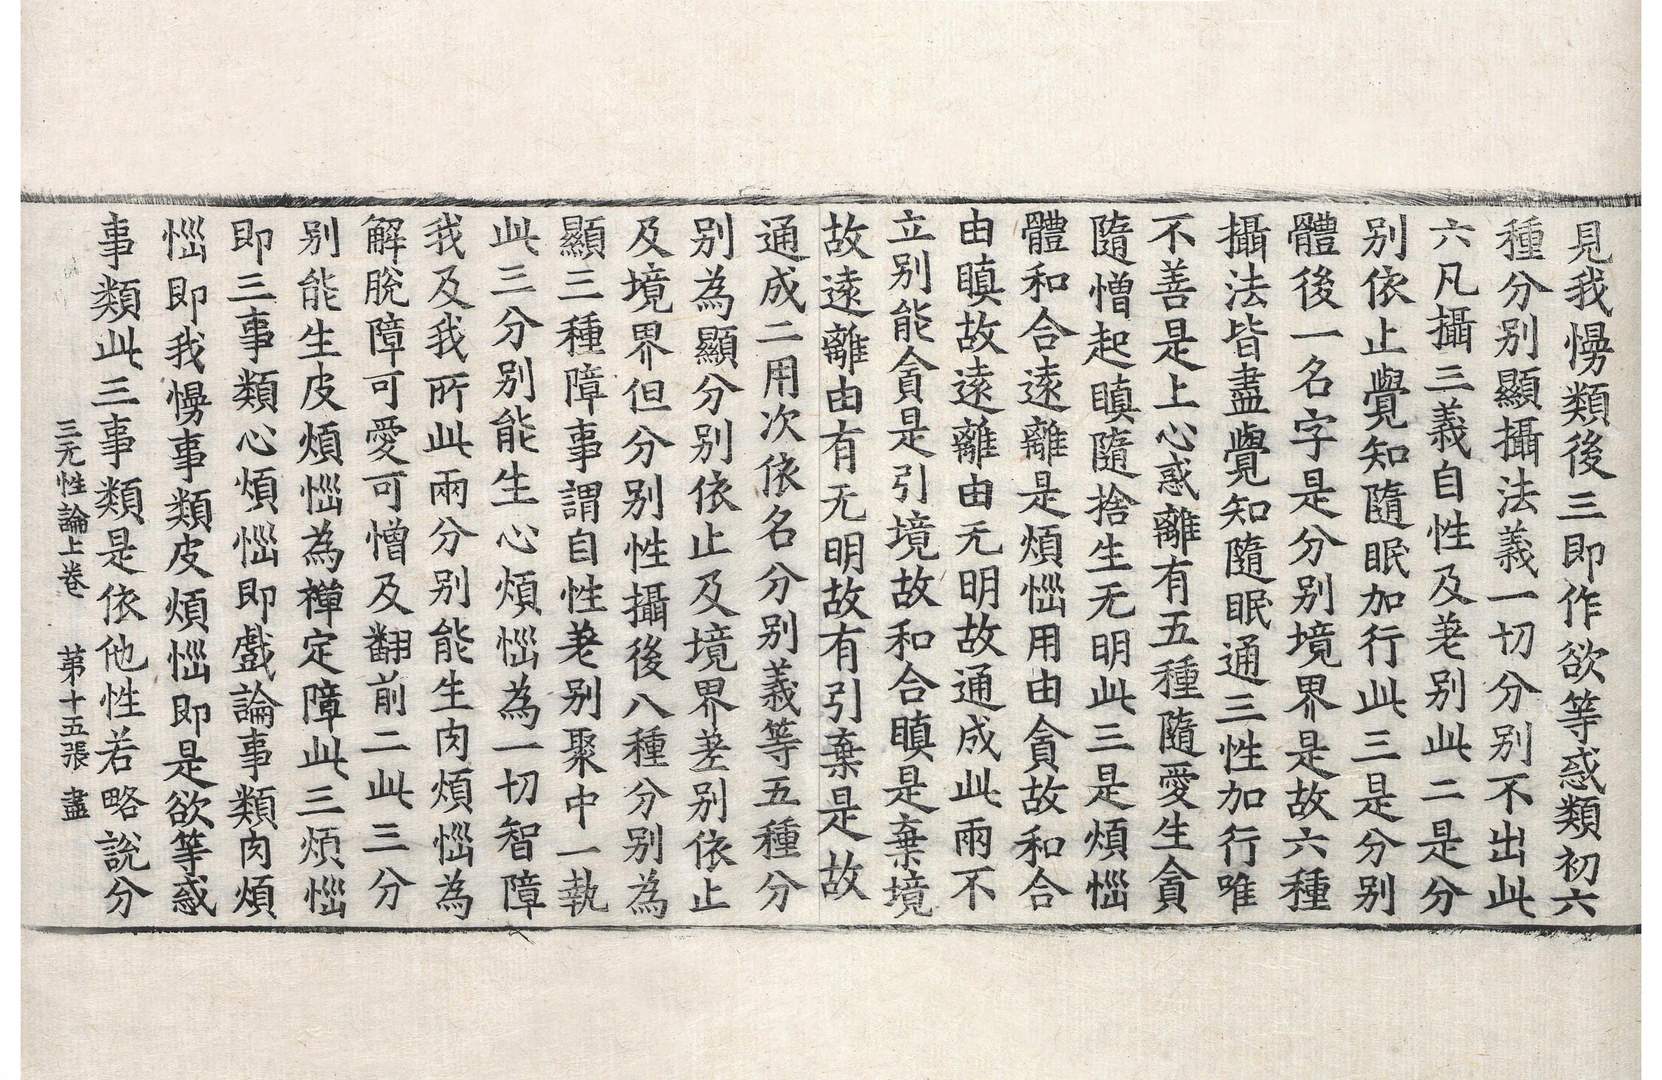 見我慢類後三即作欲等惑類初六
種分别顯攝法義一切分别不出此
六凡攝三義自性及差别此二是分
别依止覺知隨眠加行此三是分别
體後一名字是分别境界是故六種
攝法皆盡覺知隨眠通三性加行唯
不善是上心惑離有五種隨愛生貪
隨憎起瞋隨捨生无明此三是煩惱
體和合遠離是煩惱用由貪故和合
由瞋故遠離由无明故通成此兩不
立别能貪是引境故和合瞋是棄境
故遠離由有无明故有引棄是故
通成二用次依名分别義等五種分
别為顯分别依止及境界差别依止
及境界但分别性攝後八種分别為
顯三種障事謂自性差别聚中一執
此三分别能生心煩惱為一切智障
我及我所此兩分别能生肉煩惱為
解脫障可愛可憎及翻前二此三分
别能生皮煩惱為禪定障此三煩惱
即三事類心煩惱即戲論事類肉煩
惱即我慢事類皮煩惱即是欲等惑
事類此三事類是依他性若略說分
三无性論上卷　第十五張　盡